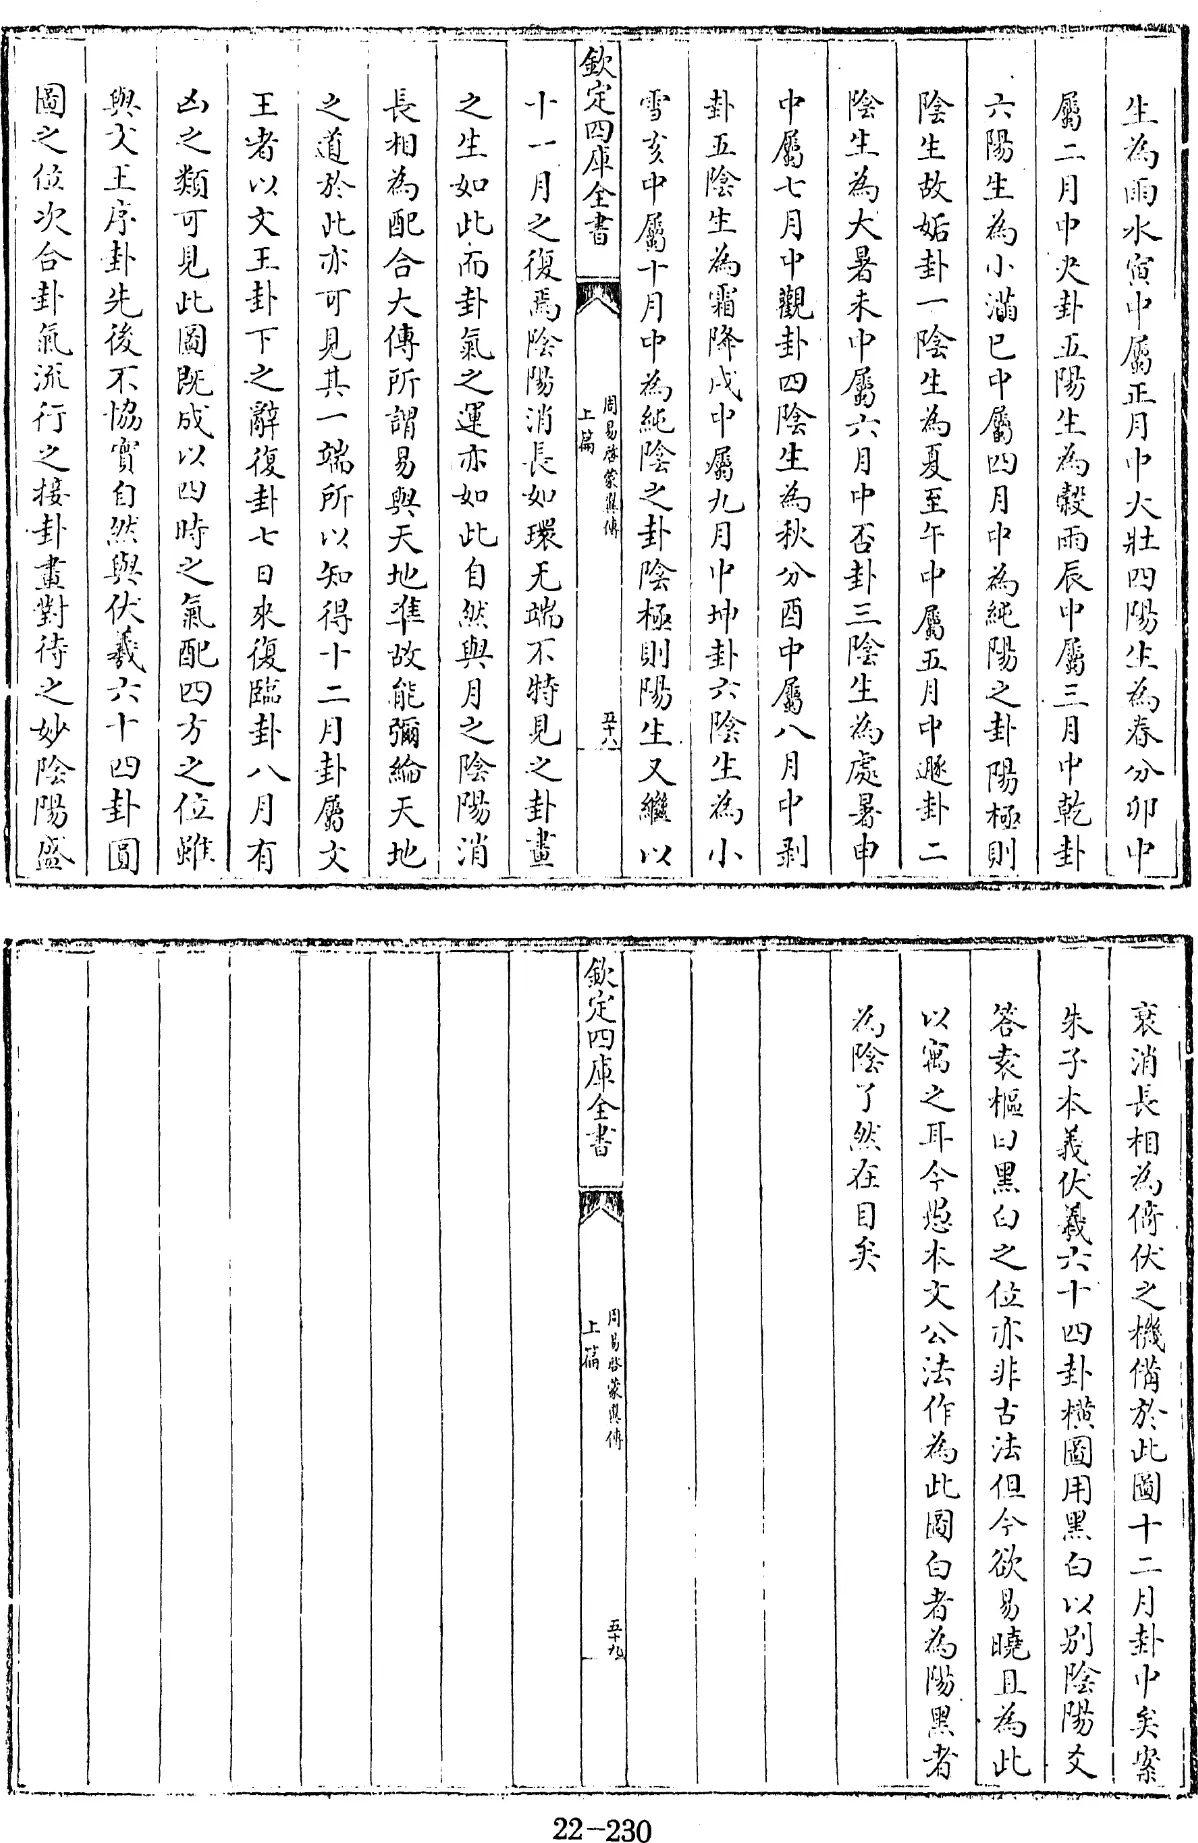 生為雨水寅中屬正月中大壯四陽生為春分卯中
屬二月中夬卦五陽生為穀雨辰中屬三月中乾卦
六陽生為小滿巳中屬四月中為純陽之卦陽極則
陰生故姤卦一陰生為夏至午中屬五月中遯卦二
陰生為大暑未中屬六月中否卦三陰生為處暑申
中屬七月中觀卦四陰生為秋分酉中屬八月中剥
卦五陰生為霜降戌中屬九月中坤卦六陰生為小
雪亥中屬十月中為純陰之卦陰極則陽生又繼以
欽定四庫全書
周易啓蒙翼傳
上篇
五十八
十一月之復焉陰陽消長如環无端不特見之卦畫
之生如此而卦氣之運亦如此自然與月之陰陽消
長相為配合大傳所謂易與天地準故能彌綸天地
之道於此亦可見其一端所以知得十二月卦屬文
王者以文王卦下之辭復卦七日來復臨卦八月有
凶之類可見此圖既成以四時之氣配四方之位雖
與文王序卦先後不協實自然與伏羲六十四卦圓
圖之位次合卦氣流行之接卦畫對待之妙陰陽盛
衰消長相為倚伏之機備於此圖十二月卦中矣案
朱子本義伏羲六十四卦橫圖用黑白以別陰陽爻
答袁樞曰黑白之位亦非古法但今欲易曉且為此
以寓之耳今愚本文公法作為此圖白者為陽黑者
為陰了然在目矣
欽定四庫全書
周易啓蒙翼傳
上篇
五十九
22-230